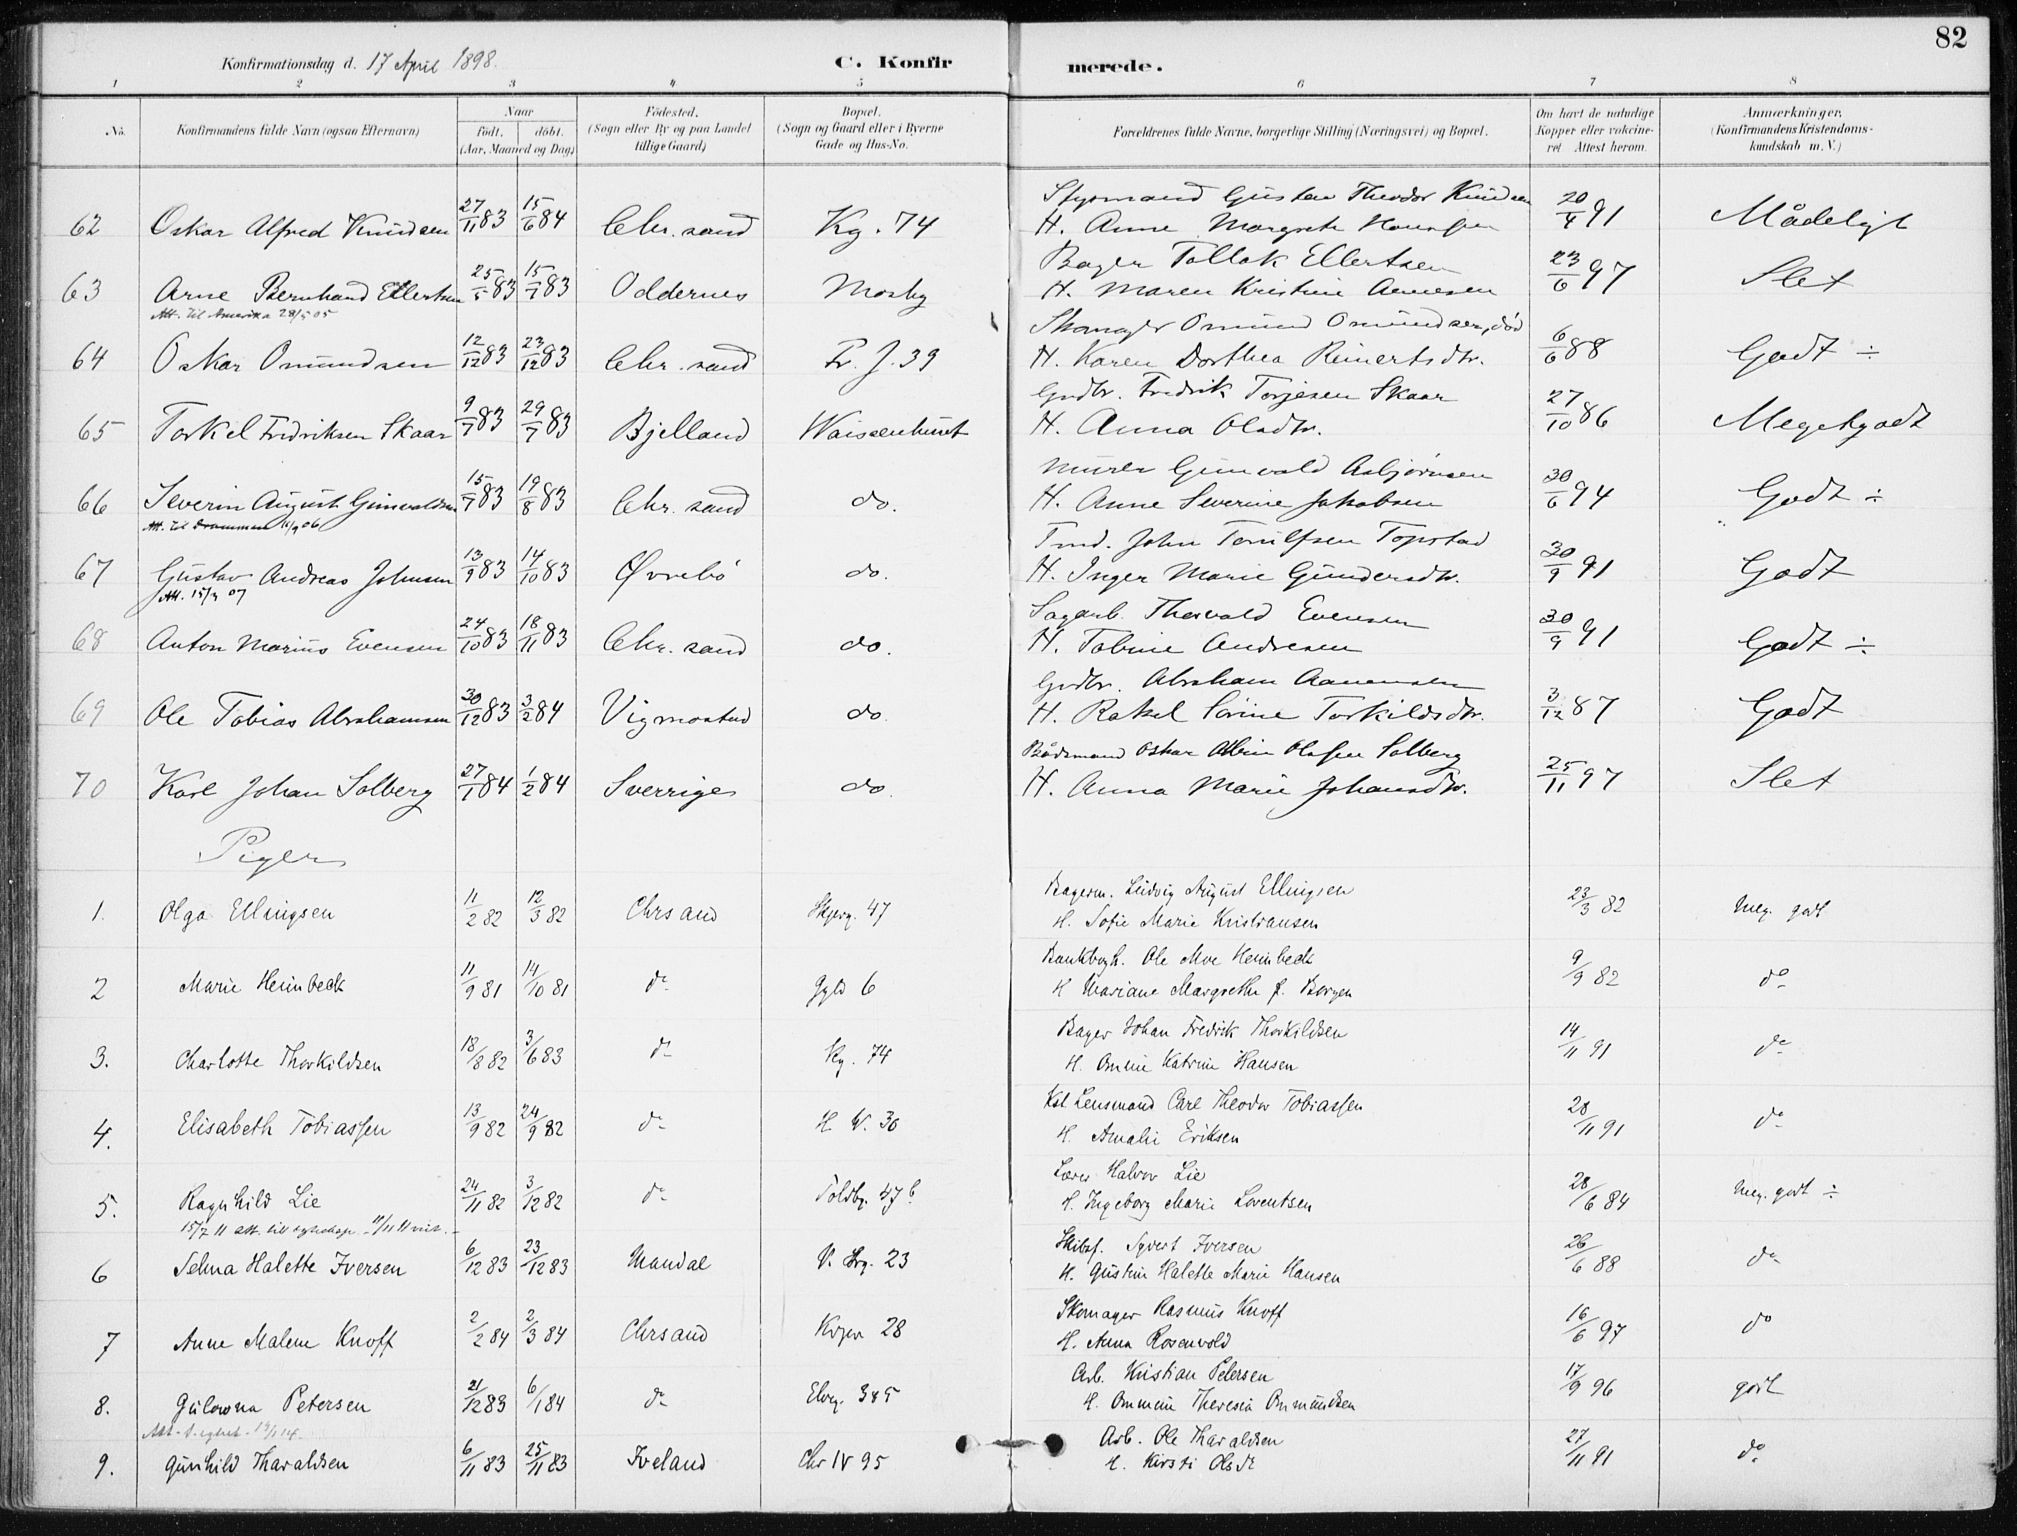 82
Konfirmationsdag d. 17 April 1898.
C. Konfirmerede.
1 2 3 4 5 6 7 8
No. Konfirmandens fulde Navn (ogsaa Efternavn) Naar født. døbt. (Aar, Maaned og Dag) Fødested. (Sogn eller By og paa Landet tillige Gaard) Bopæl. (Sogn og Gaard eller i Byerne Gade og Hus-No. Forældrenes fulde Navne, borgerlige Stilling (Næringsvei) og Bopæl. Om havt de naturlige Kopper eller vakcineret. Attest herom. Anmærkninger. (Konfirmandens Kristendomskundskab m. V.)
62 Oskar Alfred Knudsen 27/11 83 15/6 84 Chr. sand Kg. 74 Styrmand Gustav Theodor Knudsen 20/4 91 Mådeligt
H. Anne Margrete
63 Arne Bernhard Ellertsen 25/5 83 15/7 83 Oddernes Mosby Bager Tallak Ellertsen 23/6 97 Slet
Att. til Amerika 28/5 05 H. Maren Kristine Aanesen
64 Oskar Omundsen 12/12 83 23/12 83 Chr. sand Fr. J. 39 Skomager Omund Omundsen, død 6/6 88 Godt ÷
H. Karen Dorthea Reinertsdtr.
65 Torkel Fredriksen Skaar 9/7 83 29/7 83 Bjelland Waisenhuset Grdbr. Fredrik Torjesen Skaar 27/10 86 Megetgodt
H. Anna Olsdtr.
66 Severin August Gunvaldsen 15/7 83 19/8 83 Chr. sand do. Murer Gunvald Asbjørnsen 30/6 94 Godt ÷
Att. til Drammen 11/9 06 H. Anne Severine Jakobsen
67 Gustav Andreas Johnsen 13/9 83 14/10 83 Øvrebø do. Tmd. John Terulfsen Topstad 30/9 91 Godt
Att. 15/3 07 H. Inger Marie Gundersdtr.
68 Anton Marius Evensen 24/10 83 18/11 83 Chr. sand do. Sagarb. Thorvald Evensen 30/9 91 Godt ÷
H. Tobine Andresen
69 Ole Tobias Abrahamsen 30/12 83 3/2 84 Vigmostad do. Grdbr. Abraham Aanensen 3/12 87 Godt
H. Rakel Sørine Torkildsdtr.
70 Karl Johan Solberg 27/1 84 1/2 84 Sverrige do. Bådsmand Oskar Albin Olafsen Solberg 25/11 97 Slet
H. Anna Marie Johansdtr.
Piger
1. Olga Ellingsen 11/2 82 12/3 82 Chrsand Skjerg. 47 Bagerm. Ludvig August Ellingsen 23/3 82 Meg. godt
H. Sofie Marie Kristiansen
2 Marie Heinbeck 11/9 81 14/10 81 do Gyld 6 Bankbogh. Ole Moe Heinbeck 9/9 82 do
H Mariane Margrethe f. Borgen
3. Charlotte Thorkildsen 18/8 82 3/6 83 do Kg. 74 Bager Johan Fredrik Thorkildsen 14/11 91 do
H. Ommine Katrine Hansen
4. Elisabeth Tobiassen 13/9 82 24/9 82 do H. W. 30 Kst Lensmand Carl Theodor Tobiassen 28/11 91 do
H. Amalie Eriksen
5. Ragnhild Lie 24/11 82 3/12 82 do Toldbg. 47 b Lærer Halvor Lie 28/6 84 Meg. godt ÷
15/7 11 att. till H. Ingeborg Marie Lorentsen
6 Selma Halette Iversen 6/12 83 23/12 83 Mandal V. Strg. 23 Skibsf. Syvert Iversen 26/6 88 do
H. Gustine Halette Marie Hansen
7 Anne Malene Knoff 2/2 84 2/3 84 Chrsand 28 Skomager Rasmus Knoff 16/6 97 do
H. Anna Rosenvold
8. Gulowna Petersen 21/12 83 6/1 84 do Elvg. Arb. Kristian Petersen 17/9 96 godt
Att. H. Ommine Theresia Ommundsen
9. Gunhild Tharaldsen 6/11 83 25/11 83 Iveland Chr IV 95 Arb. Ole Tharaldsen 27/11 91 do
H. Kirsti Olsdt